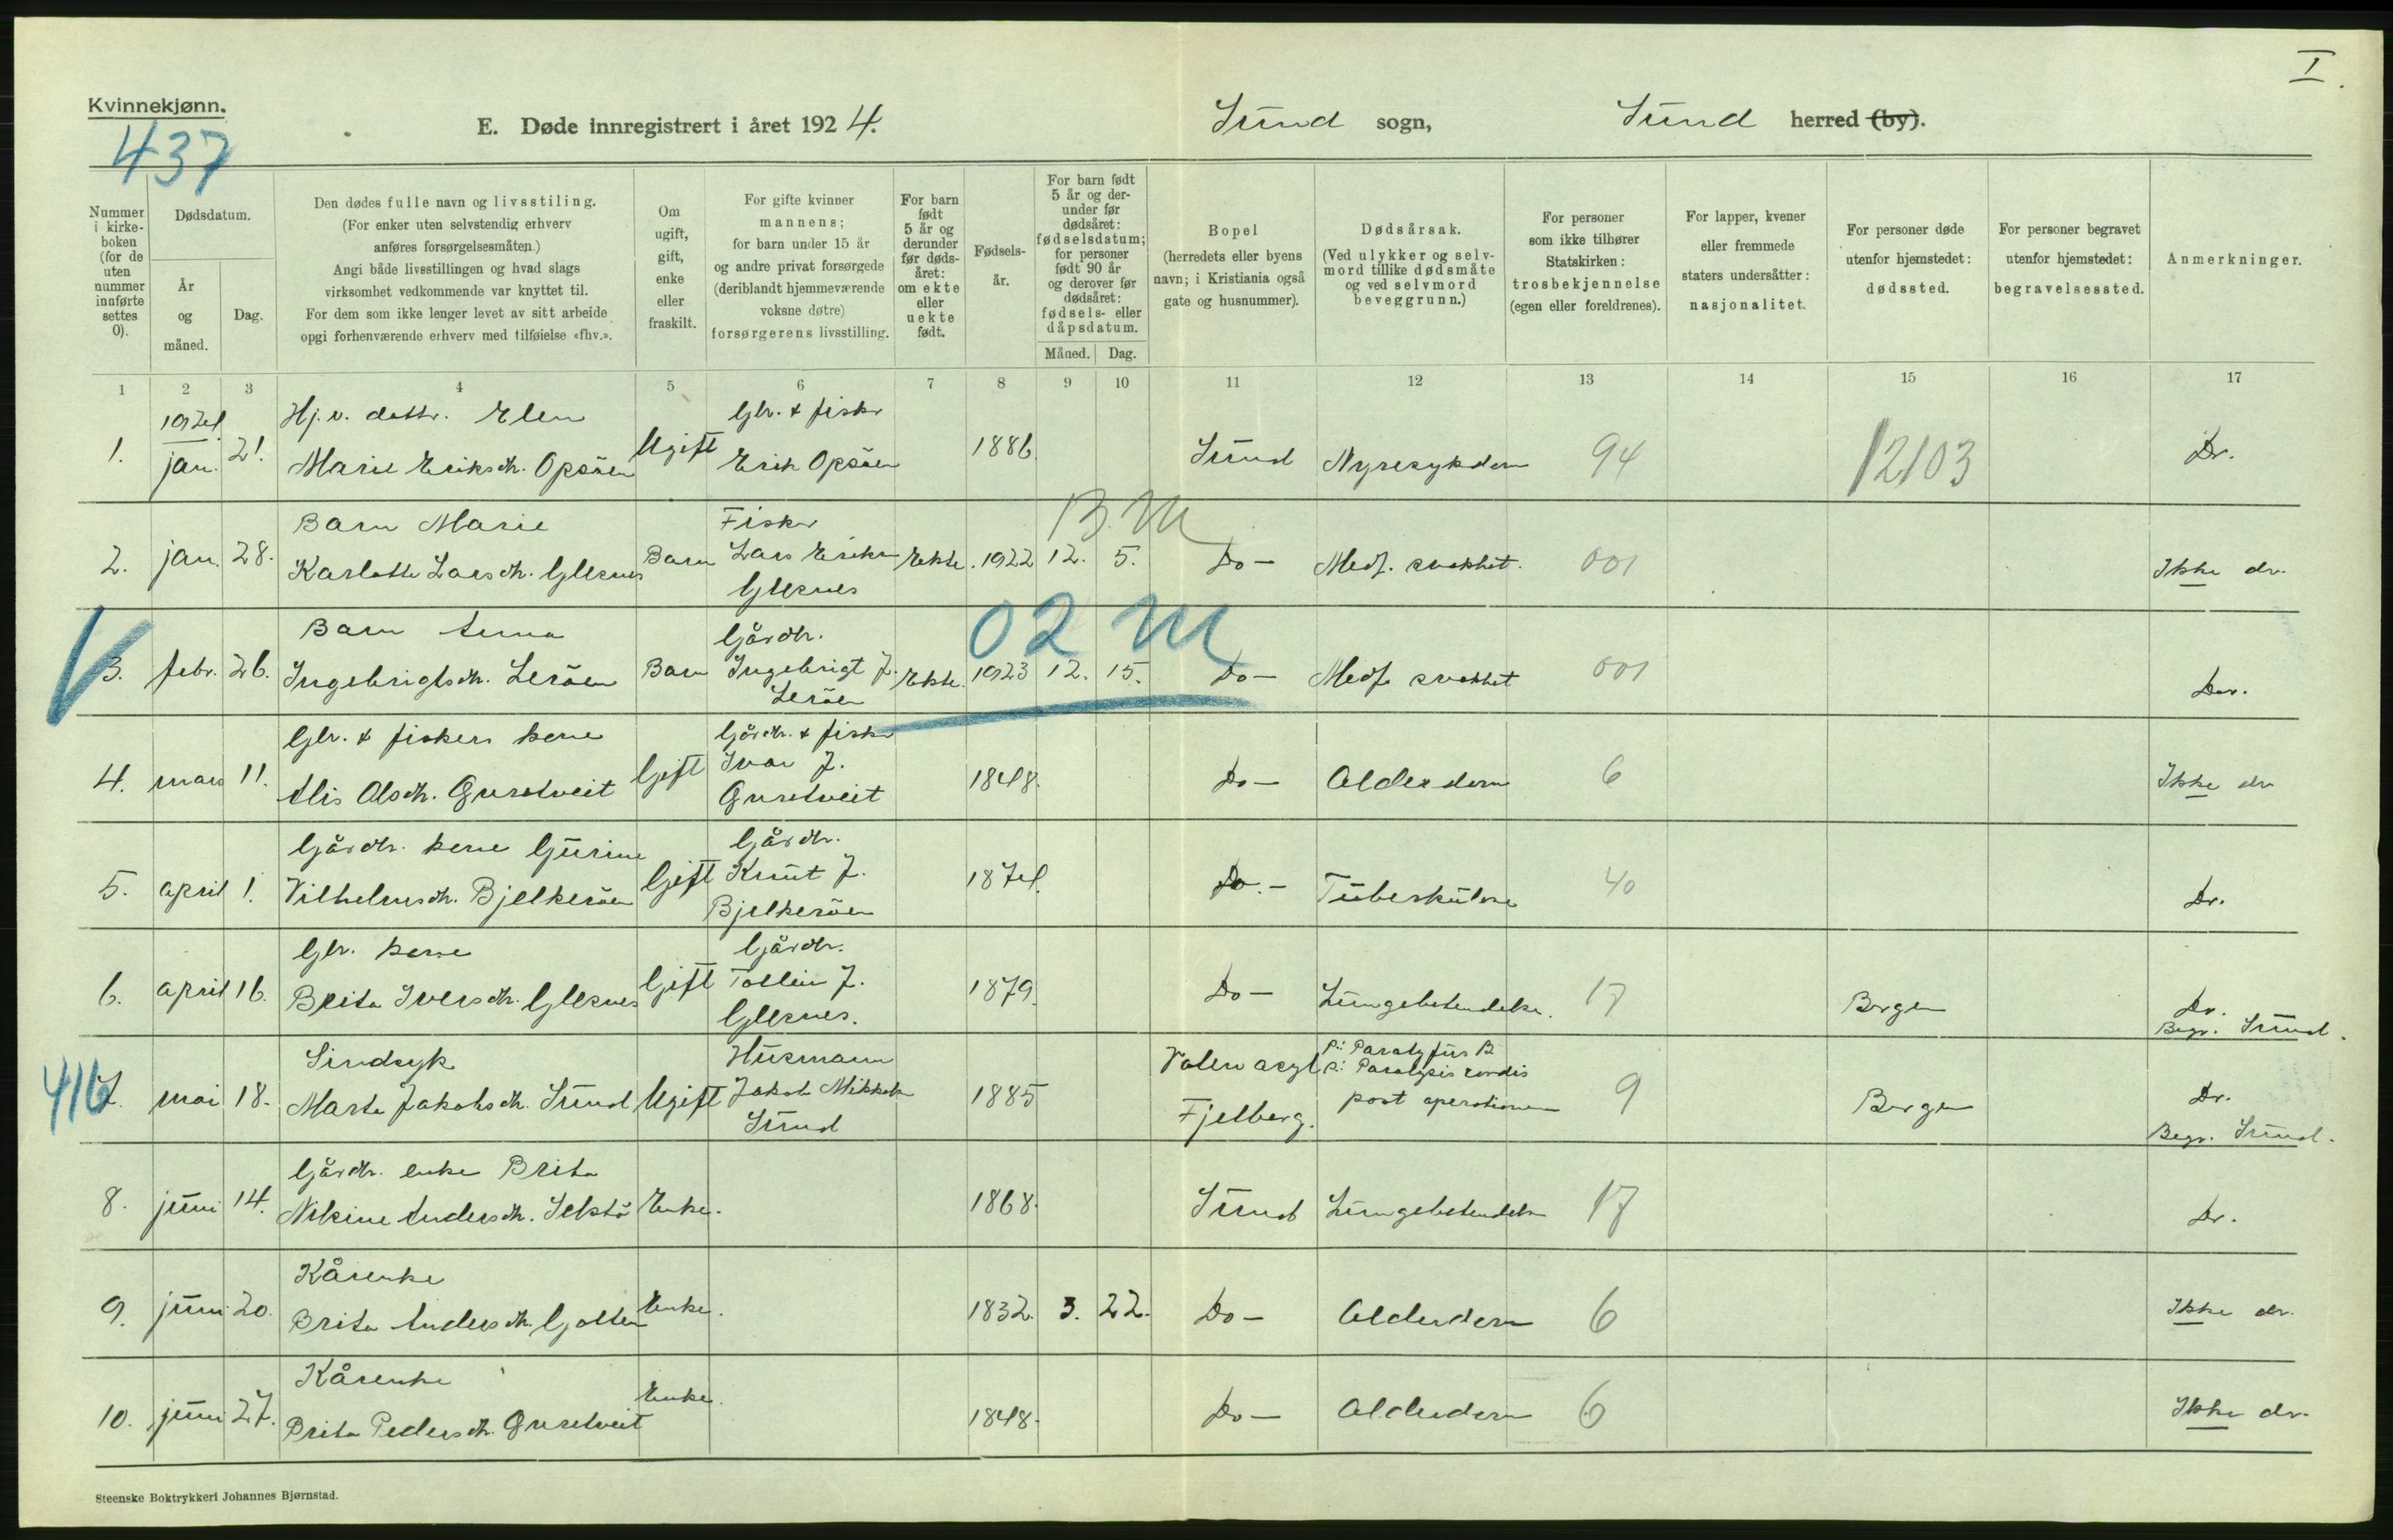 I.
Kvinnekjønn.
437
E. Døde innregistrert i året 1924.
Sund sogn,
Sund herred (by).
Nummer i kirke-boken (for de uten nummer innførte settes 0).
Dødsdatum.
År og måned.
Dag.
Den dødes fulle navn og livsstiling.
(For enker uten selvstendig erhverv
anføres forsørgelsesmåten.)
Angi både livsstillingen og hvad slags
virksomhet vedkommende var knyttet til.
For dem som ikke lenger levet av sitt arbeide
opgi forhenværende erhverv med tilføielse «fhv.».
Om
ugift,
gift,
enke
eller
fraskilt.
For gifte kvinner
mannens;
for barn under 15 år
og andre privat forsørgede
(deriblandt hjemmeværende
voksne døtre)
forsørgerens livsstilling.
For barn
født
5 år og
derunder
før døds-
året:
om ekte
eller
uekte
født.
Fødsels-
år.
For barn født
5 år og der-
under før
dødsåret:
fødselsdatum;
for personer
født 90 år
og derover før
dødsåret:
fødsels- eller
dåpsdatum.
Måned. Dag.
Bopel
(herredets eller byens
navn; i Kristiania også
gate og husnummer).
Dødsårsak.
(Ved ulykker og selv-
mord tillike dødsmåte
og ved selvmord
beveggrunn.)
For personer
som ikke tilhører
Statskirken:
trosbekjennelse
(egen eller foreldrenes).
For lapper, kvener
eller fremmede
staters undersåtter:
nasjonalitet.
For personer døde
utenfor hjemstedet:
dødssted.
For personer begravet
utenfor hjemstedet:
begravelsessted.
Anmerkninger.
1 2 3 4 5 6 7 8 9 10 11 12 13 14 15 16 17
1924
Hj.v. dattr. Elen
Gbr. & fisker
1. jan. 21. Marie Eriksdtr. Opsöen Ugift Erik Opsöen 1886. Sund Nyresykdom 94 12103 Dr.
Barn Marie
Fisker
B. M
2. jan. 28. Karlotte Larsdtr. Glesnes Barn Lars Eriksen Ekte. 1922 12. 5. Do - Medf. svakhet. 001 Ikke dr.
Glesnes
Barn Anna
Gårdbr.
02 M
3. febr. 26. Ingebrigtsdtr. Leröen Barn Ingebrigt J. Ekte. 1923 12. 15. Do - Medf. svakhet 001 Dr.
Leröen
Gbr. & fiskers kone
Gårdbr. & fisker
4. mars 11. Alis Olsdtr. Gursetveit Gift Ivar J. 1848. Do - Alderdom 6 Ikke dr
Gursetveit
Gårdbr. kone Gurine
Gårdbr.
5. april 1. Vilhelmsdtr. Bjelkeröen Gift Knut J. 1874. Do. - Tuberkulose 40 Dr.
Bjelkeröen
Gbr. kone
Gårdbr.
6. april 16. Brita Iversdtr. Glesnes Gift Tollein J. 1879. Do - Lungebetendelse. 17 Bergen Dr.
Glesnes.
Begr. Sund.
416
Sindsyk
Husmann
Valen asyl
P: Paratyfus B
7. mai 18. Marta Jakobsdtr. Sund Ugift Jakob Mikkelsen 1885 Fjelberg. S: Paralysis cordis 9 Bergen Dr.
Sund
post operationem
Begr. Sund.
Gårdbr. enke Brita
8. juni 14. Nikine Andersdtr. Selstö Enke. 1868. Sund Lungebetendelse 17 Dr.
Kårenke
9. juni 20. Brita Andersdtr. Golten Enke. 1832. 3. 22. Do - Alderdom 6 Ikke dr.
Kårenke
10. juni 27. Brita Pedersdtr. Gursetveit Enke. 1848. Do - Alderdom 6 Ikke dr.
Steenske Boktrykkeri Johannes Bjørnstad.